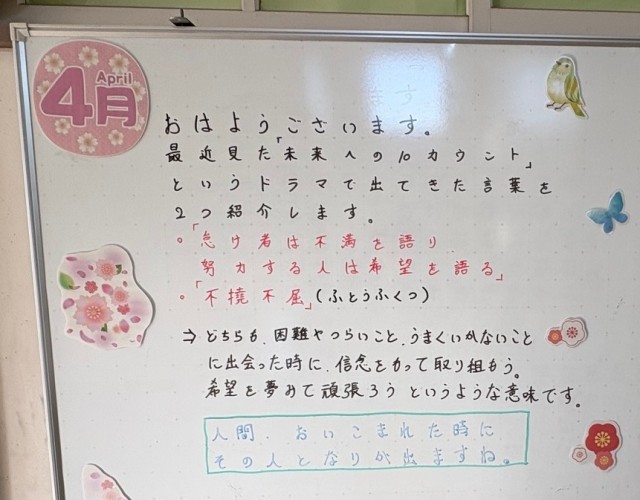 April
4月
おはようございます。
最近見た「未来への10カウント」
というドラマで出てきた言葉を
2つ紹介します。
。「怠け者は不満を語り
努力する人は希望を語る」
。「不撓不屈」(ふとうふくつ)
⇒どちらも、困難やつらいこと、うまくいかないこと
に出会った時に、信念をもって取り組もう。
希望を夢みて頑張ろうというような意味です。
人間、おいこまれた時に
その人となりが出ますね。